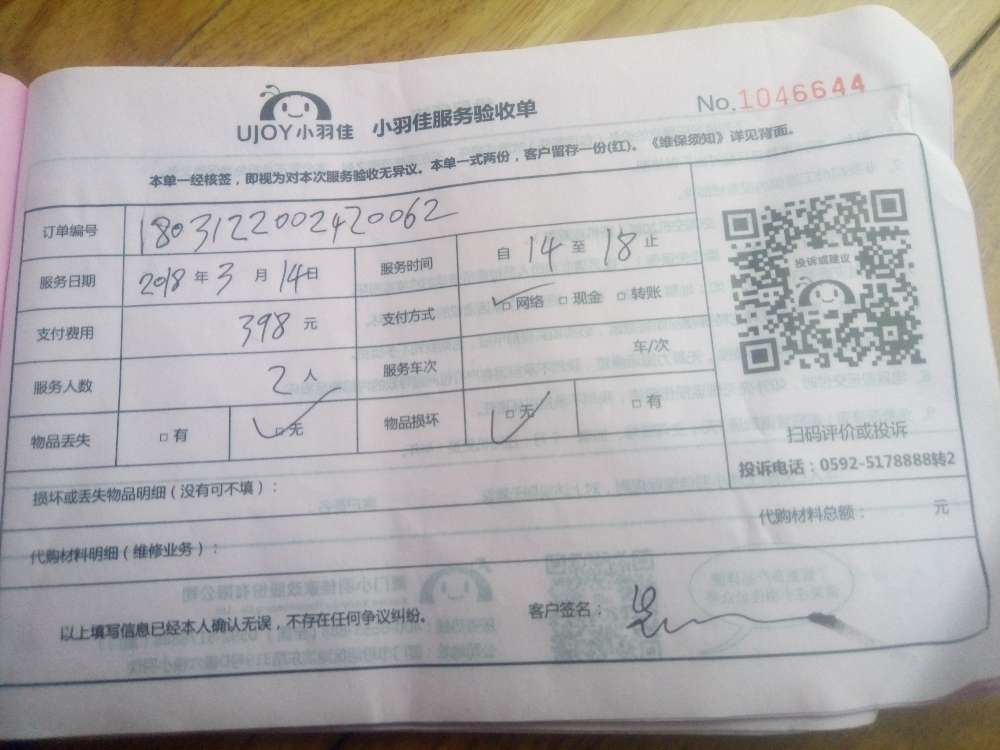 UJOY小羽佳 小羽佳服务验收单 No.1046644
本单一经核签，即视为对本次服务验收无异议。本单一式两份，客户留存一份(红)。《维保须知》详见背面。
订单编号 1803122002420062
服务日期 2018年3月14日 服务时间 自14至18止
支付费用 398元 支付方式 ☑网络 □现金 □转账
服务人数 2人 服务车次 车/次
物品丢失 □有 ☑无 物品损坏 ☑无 □有
投诉或建议
扫码评价或投诉
投诉电话：0592-5178888转2
损坏或丢失物品明细（没有可不填）：
代购材料总额： 元
代购材料明细（维修业务）：
以上填写信息已经本人确认无误，不存在任何争议纠纷。 客户签名：